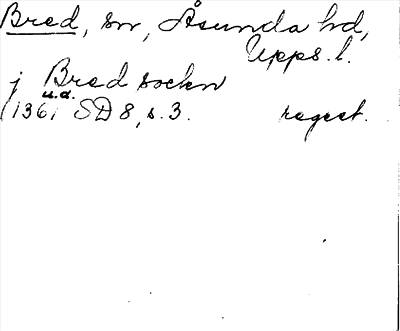 Bred, sn, Åsunda hd,
Upps. l.
j Bred sockn
u.a.
(1361 SD 8, s. 3. regest.